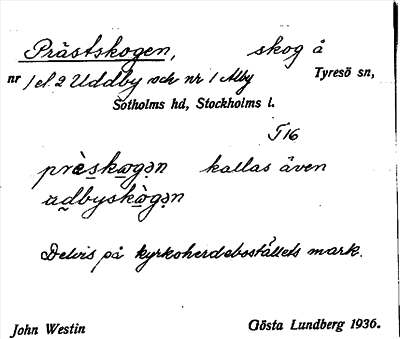 Prästskogen, skog å
nr 1 el. 2 Uddby och nr 1 Alby Tyresö sn,
Sotholms hd, Stockholms l.
T16
prèskogən kallas även
udbyskògən
Delvis på kyrkoherdeboställets mark.
John Westin Gösta Lundberg 1936.